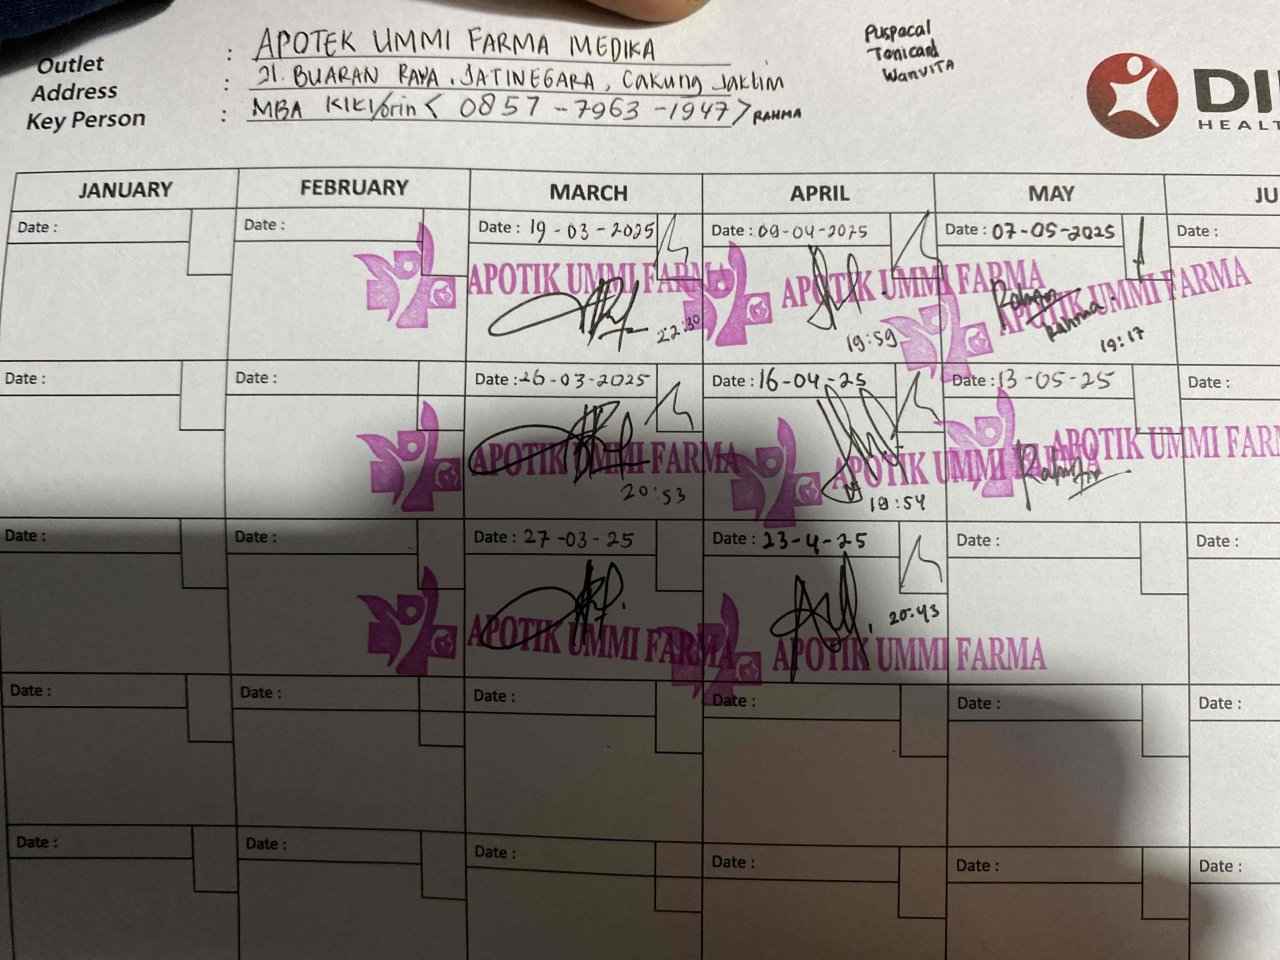 Outlet : APOTEK UMMI FARMA MEDIKA
Address : Jl. BUARAN RAYA . JATINEGARA , Cakung Jaktim
Key Person : MBA KIKI/orin < 0857 - 7963 - 1947 > RAHMA
Puspacal
Tonicard
WanVITA
DI
HEALT
JANUARY FEBRUARY MARCH APRIL MAY JU
Date : Date : Date : 19 - 03 - 2025 Date : 09-04-2025 Date : 07-05-2025 Date :
APOTIK UMMI FARMA APOTIK UMMI FARMA APOTIK UMMI FARMA
Rahma
22:30 19:59 19:17
Date : Date : Date : 26 -03-2025 Date : 16-04-25 Date : 13-05-25 Date :
APOTIK UMMI FARMA APOTIK UMMI FARMA APOTIK UMMI FAR
20:53 19:54
Date : Date : Date : 27 -03- 25 Date : 23-4-25 Date : Date :
20.43
APOTIK UMMI FARMA APOTIK UMMI FARMA
Date : Date : Date : Date : Date : Date :
Date : Date : Date : Date : Date : Date :